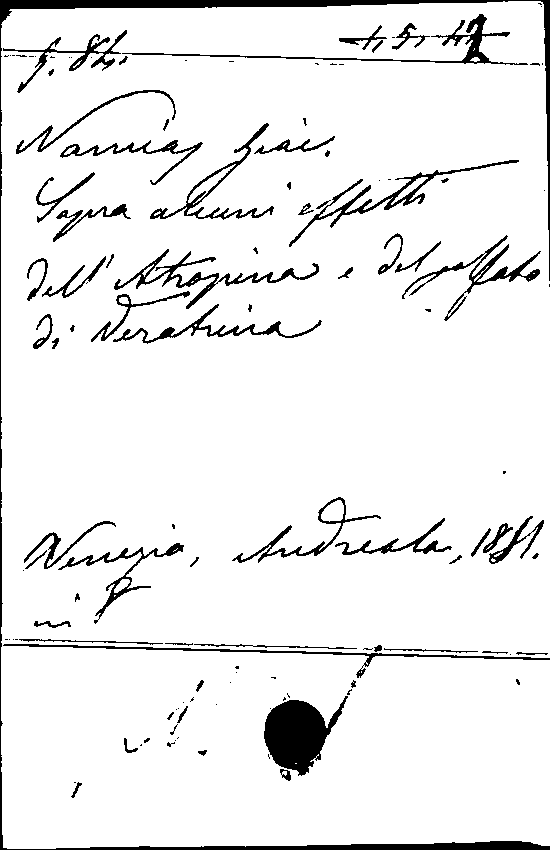 9. 84.
Namias Giac.
Sopra alcuni effetti
dell' Atropina e del solfato
di Veratrina
Venezia, Andreola, 1851.
in 8